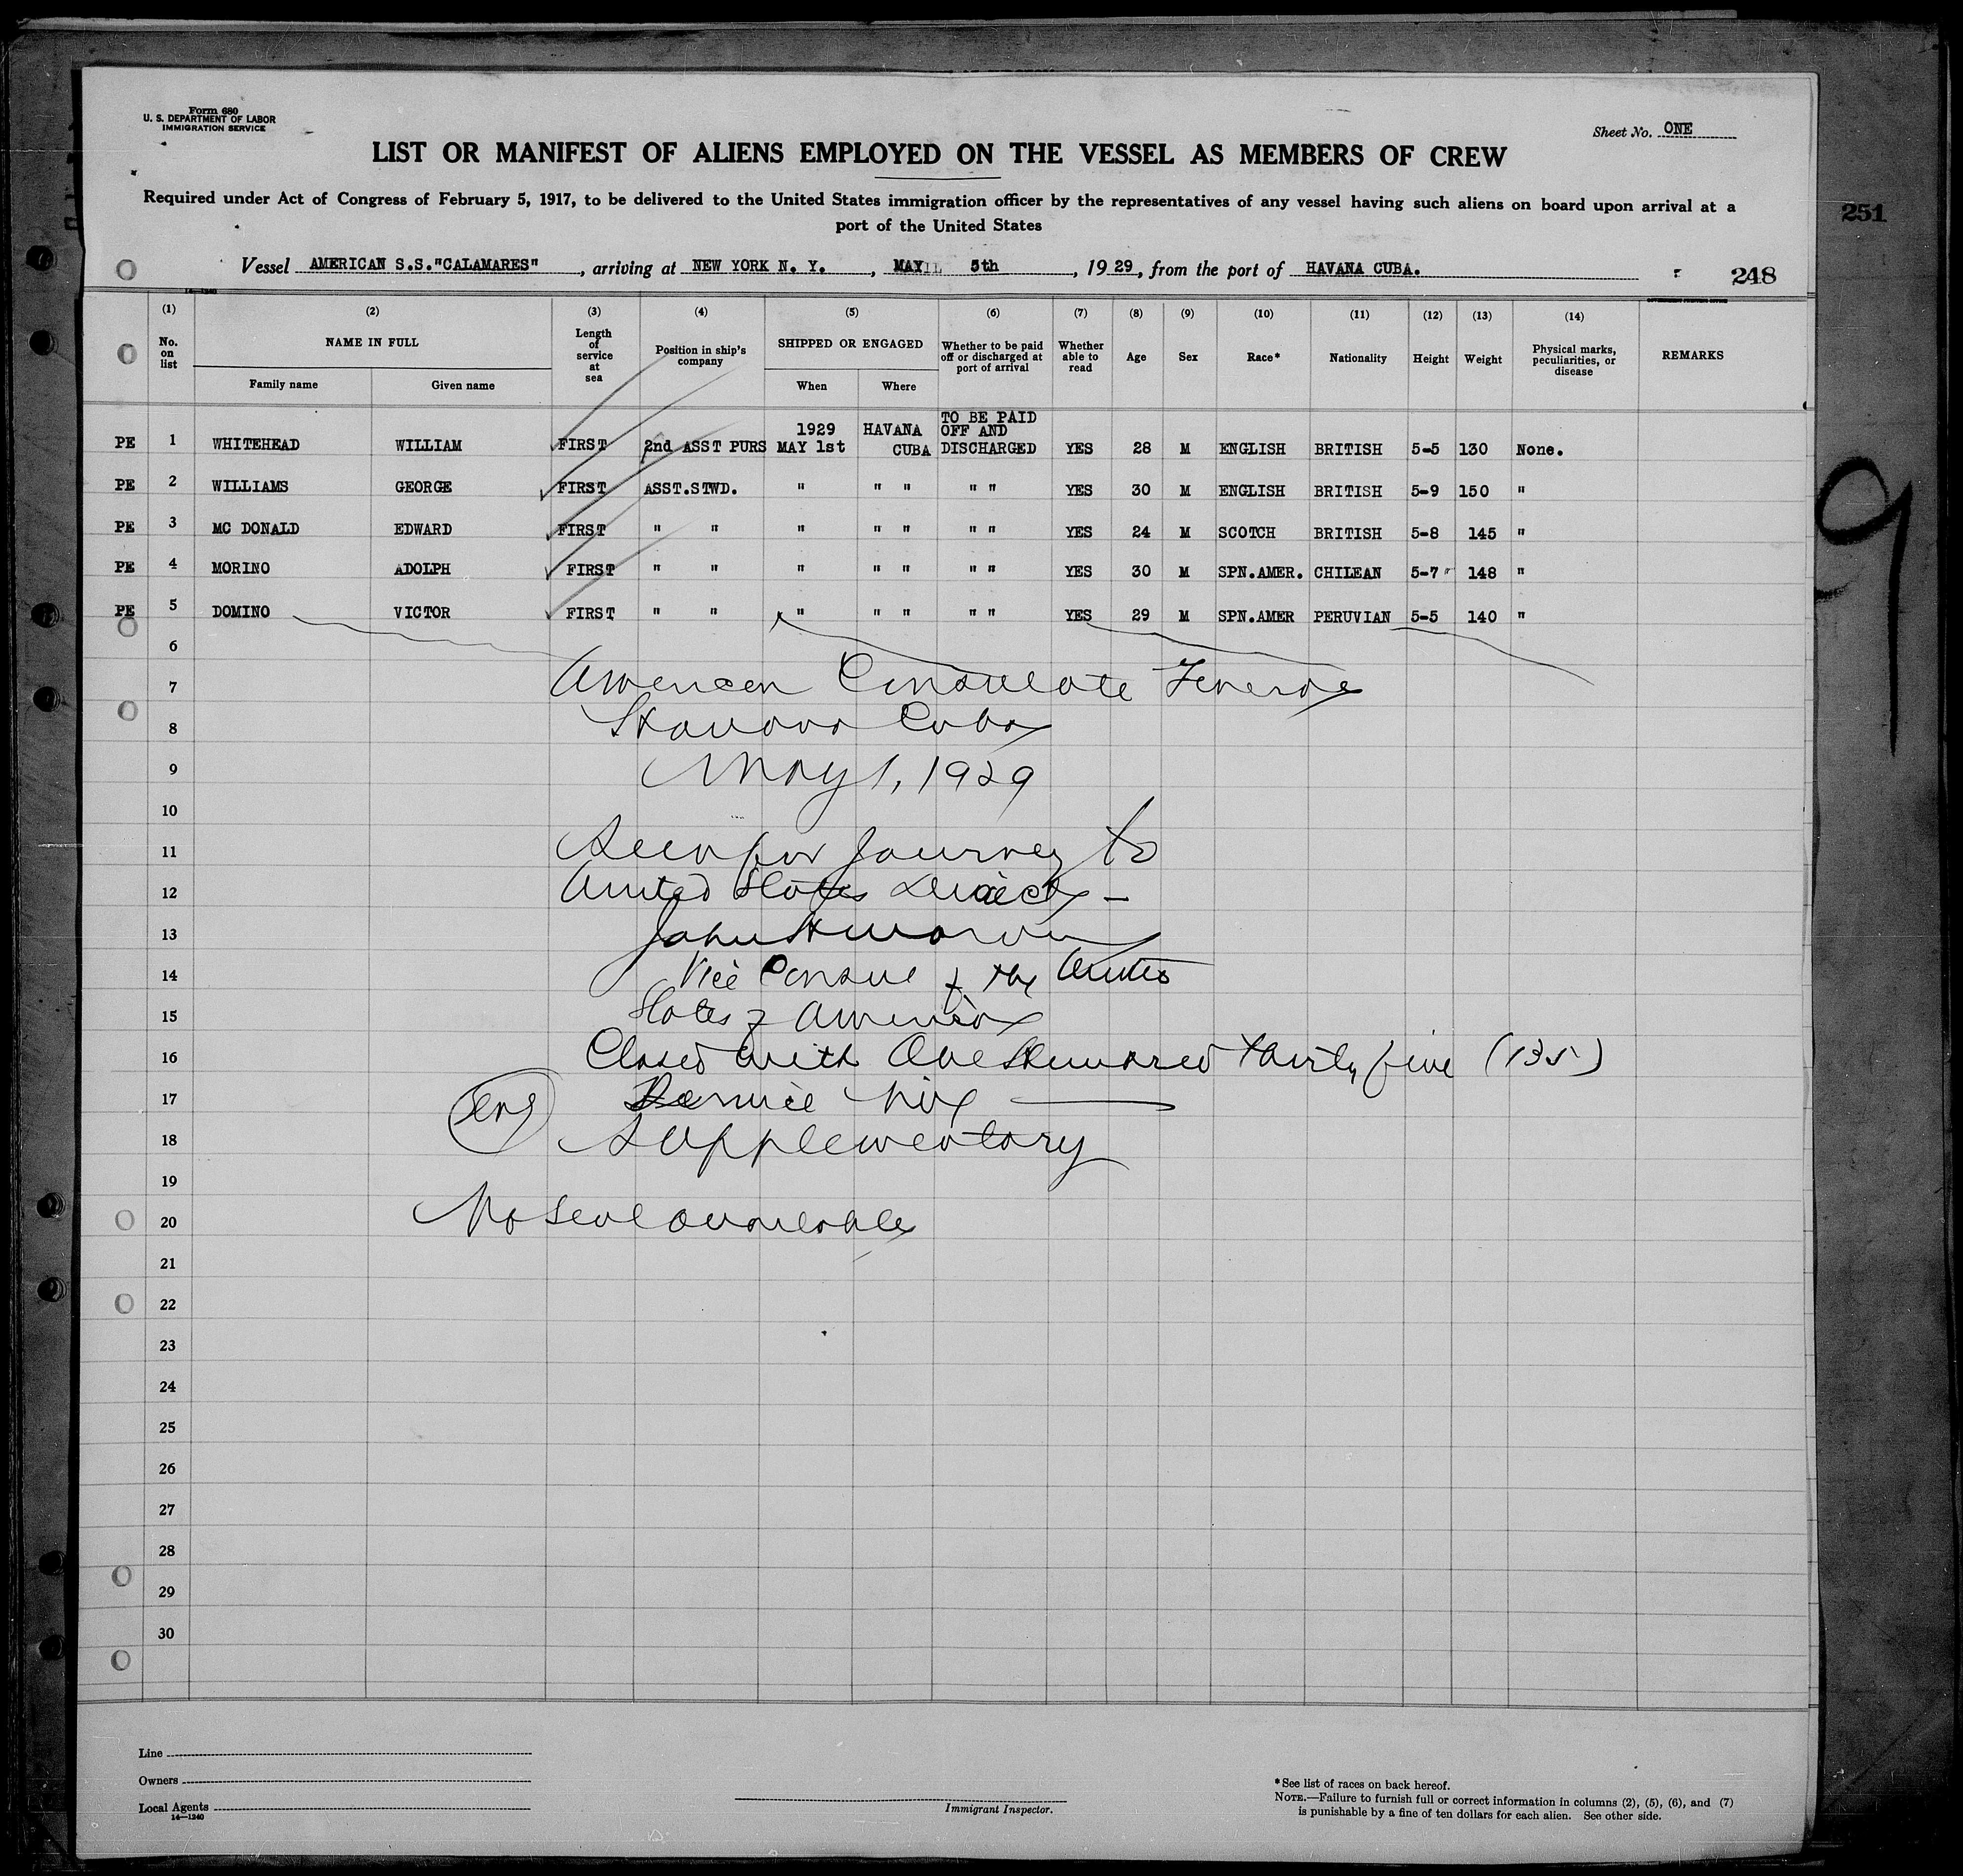 Form 680
U. S. DEPARTMENT OF LABOR
IMMIGRATION SERVICE
Sheet No. ONE
LIST OR MANIFEST OF ALIENS EMPLOYED ON THE VESSEL AS MEMBERS OF CREW
Required under Act of Congress of February 5, 1917, to be delivered to the United States immigration officer by the representatives of any vessel having such aliens on board upon arrival at a
port of the United States
251
Vessel AMERICAN S.S."CALAMARES", arriving at NEW YORK N. Y., MAY 5th, 1929, from the port of HAVANA CUBA.
248
(1) (2) (3) (4) (5) (6) (7) (8) (9) (10) (11) (12) (13) (14)
No. on list NAME IN FULL Family name Given name Length of service at sea Position in ship's company SHIPPED OR ENGAGED When Where Whether to be paid off or discharged at port of arrival Whether able to read Age Sex Race* Nationality Height Weight Physical marks, peculiarities, or disease REMARKS
PE 1 WHITEHEAD WILLIAM FIRST 2nd ASST PURS 1929 MAY 1st HAVANA CUBA TO BE PAID OFF AND DISCHARGED YES 28 M ENGLISH BRITISH 5-5 130 None.
PE 2 WILLIAMS GEORGE FIRST ASST.STWD. " " " " " YES 30 M ENGLISH BRITISH 5-9 150 "
PE 3 MC DONALD EDWARD FIRST " " " " " " " YES 24 M SCOTCH BRITISH 5-8 145 "
PE 4 MORINO ADOLPH FIRST " " " " " " " YES 30 M SPN.AMER. CHILEAN 5-7 148 "
PE 5 DOMINO VICTOR FIRST " " " " " " " YES 29 M SPN.AMER PERUVIAN 5-5 140 "
6
7 American Consulate General
8 Havana Cuba
9 May 1, 1929
10
11 Seen for journey to
12 United States direct —
13 John H
14 Vice Consul of the United
15 States of America
16 Closed with One Hundred thirty five (135)
17 Service No
18 Supplementary
19
20 No seal available
21
22
23
24
25
26
27
28
29
30
9
Line
Owners
Local Agents
14—1240
Immigrant Inspector.
*See list of races on back hereof.
NOTE.—Failure to furnish full or correct information in columns (2), (5), (6), and (7)
is punishable by a fine of ten dollars for each alien. See other side.